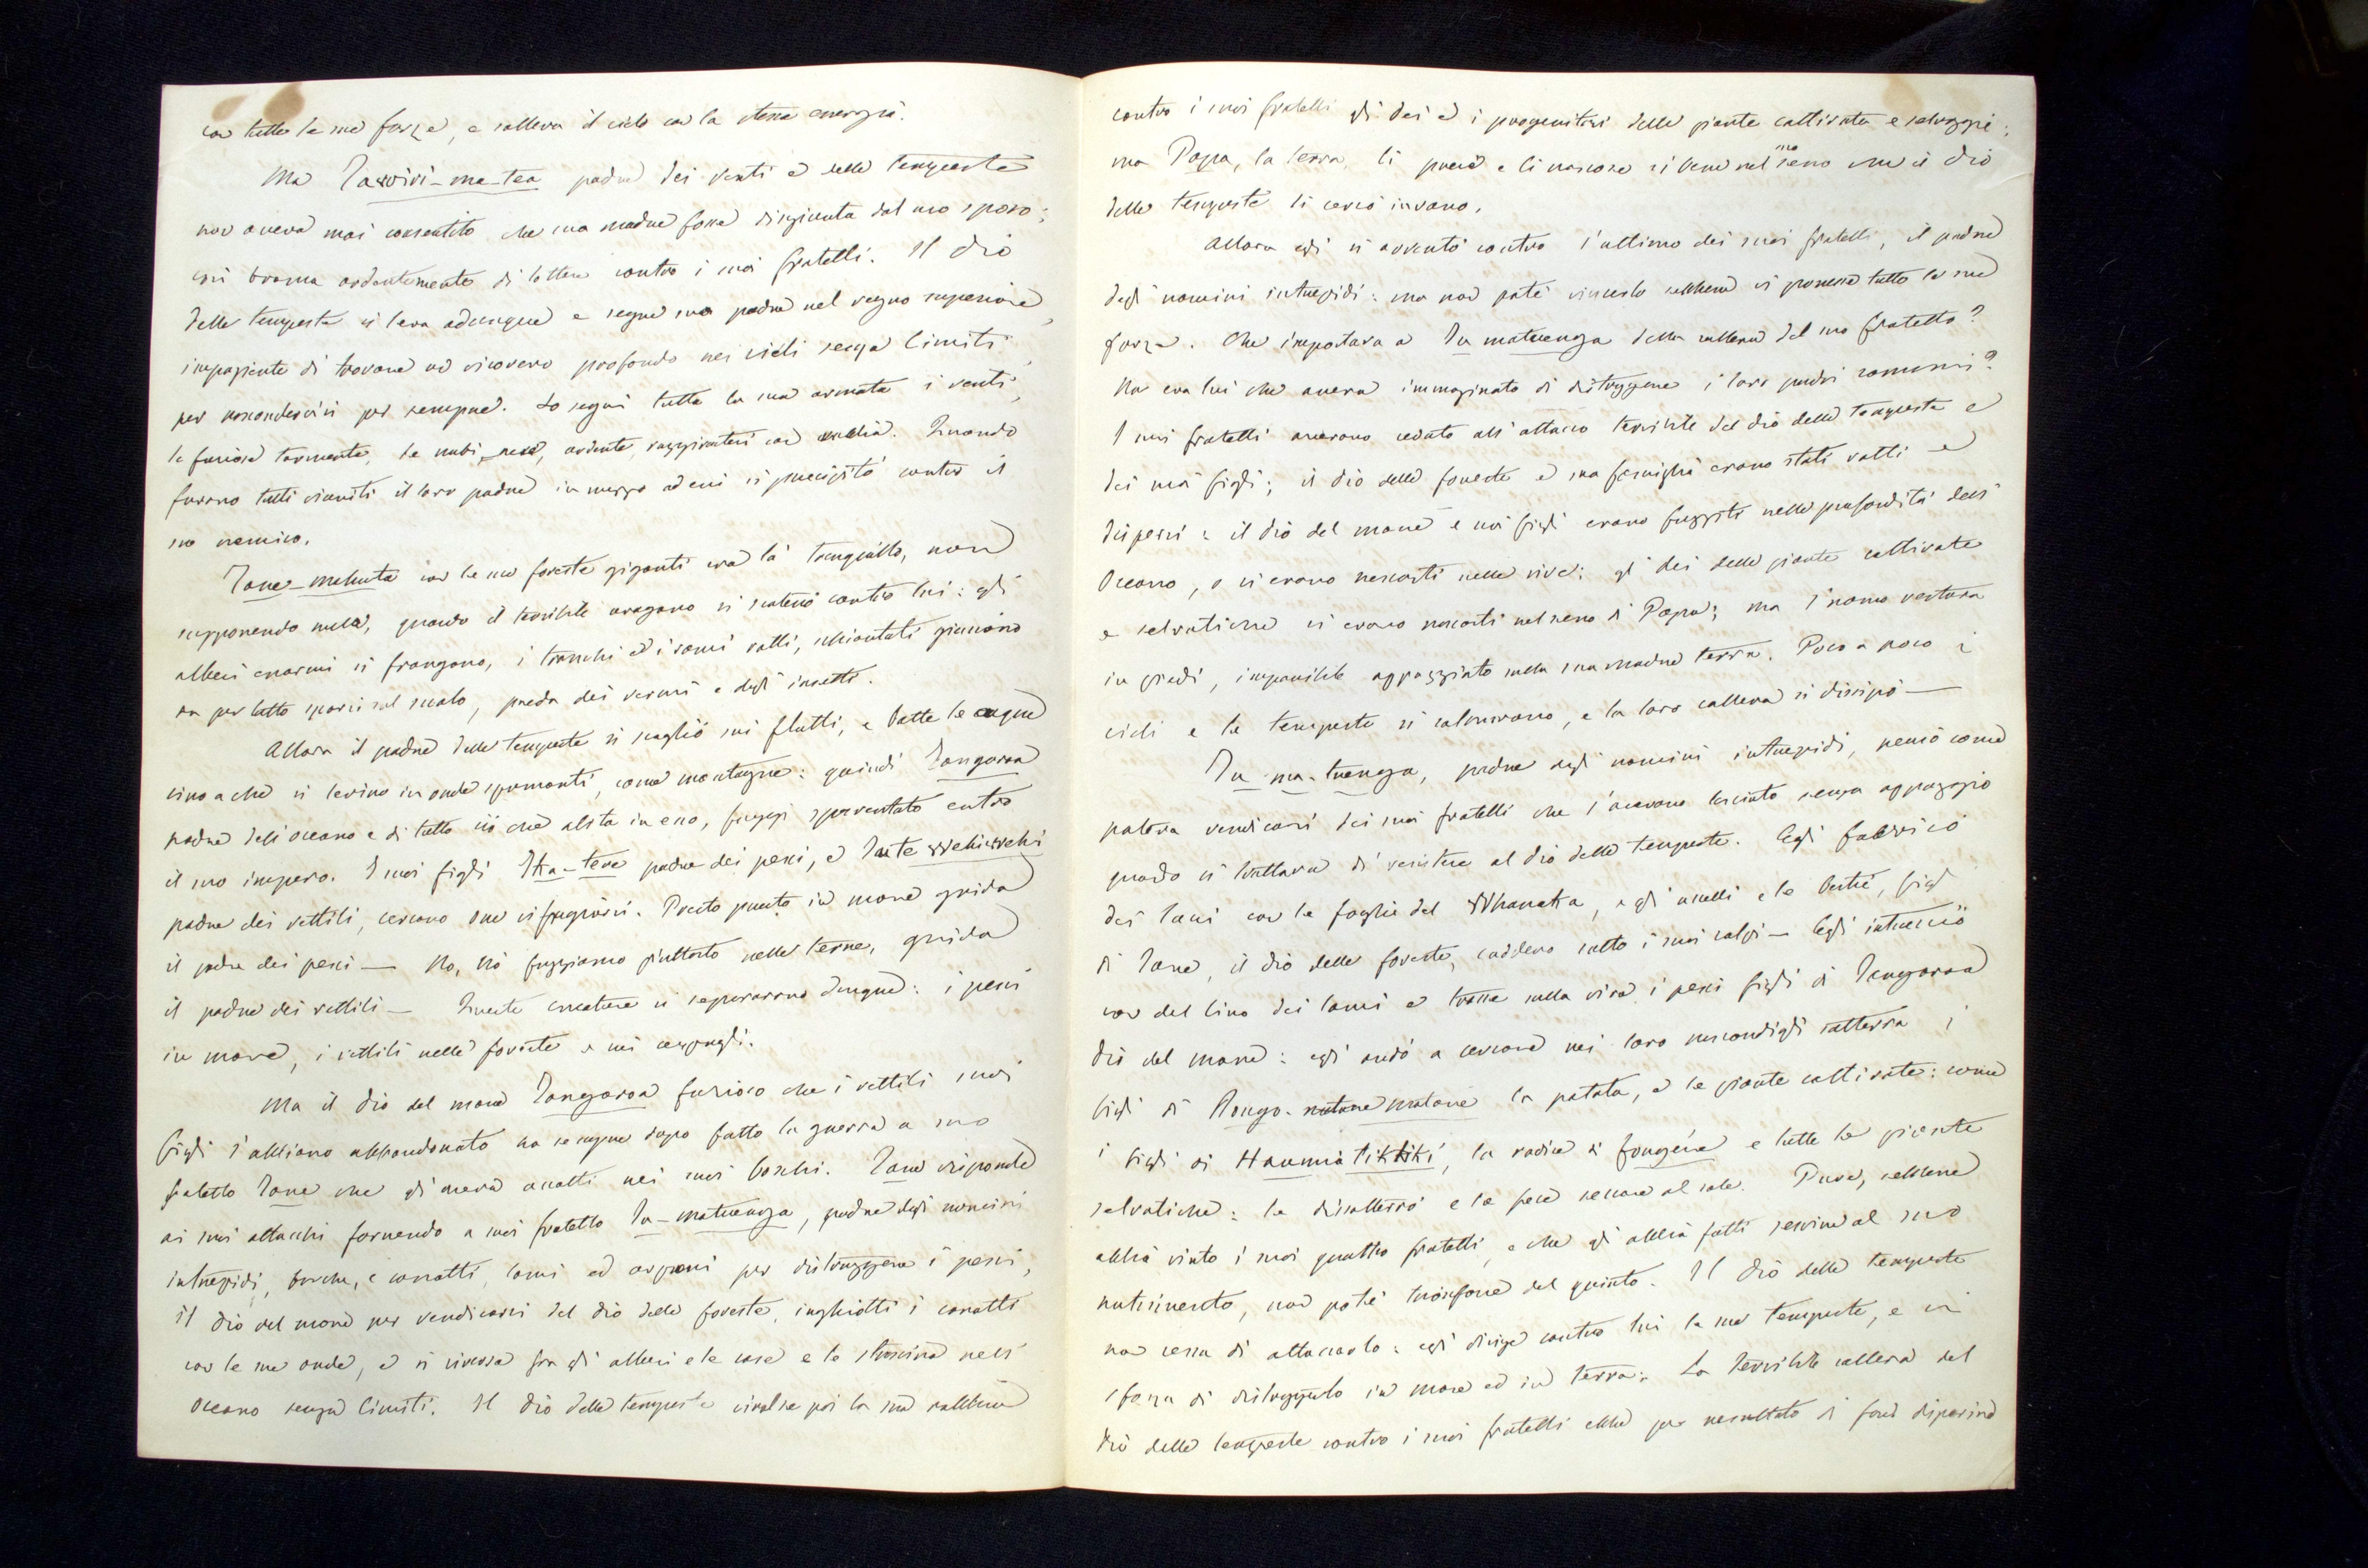 con tutte le sue forze, e solleva il cielo con la stessa energia.
Ma Tawiri-ma-tea padre dei venti e delle tempeste
non aveva mai consentito che sua madre fosse disgiunta dal suo sposo;
così brama ardentemente di lottare contro i suoi fratelli. Il dio
delle tempeste si leva adunque e segue suo padre nel regno superiore,
impaziente di trovare un ricovero profondo nei cieli senza limiti
per nascondervisi per sempre. Lo seguì tutta la sua armata i venti,
le furiose tormente, le nubi nere, ardente, con rabbia. Quando
furono tutti riuniti il loro padre in mezzo ad essi si precipitò contro il
suo nemico.
Tane-mahuta con le sue foreste giganti era là tranquillo, non
supponendo nulla, quando il terribile uragano si scatenò contro lui: gli
alberi enormi si frangono, i tronchi ed i rami rotti, schiantati giacciono
da per tutto sparsi sul suolo, preda dei vermi e degli insetti.
Allora il padre delle tempeste si scagliò sui flutti, e batte le acque
sino a che si levino in onde spumanti, come montagne: quindi Tangaroa
padre dell'oceano e di tutto ciò che abita in esso, fuggì spaventato entro
il suo impero. I suoi figli Ika-tere padre dei pesci, e Tute wehiwehi
padre dei rettili, cercano ove rifugiarsi. Presto presto in mare grida
il padre dei pesci — No, no fuggiamo piuttosto nelle terre, grida
il padre dei rettili — Queste creature si separarono dunque: i pesci
in mare, i rettili nelle foreste e nei cespugli.
Ma il dio del mare Tangaroa furioso che i rettili suoi
figli l'abbiano abbandonato ha sempre dopo fatto la guerra a suo
fratello Tane che gli aveva accolti nei suoi boschi. Tane risponde
ai suoi attacchi fornendo a suo fratello Tu-matuenga, padre degli uomini
intrepidi, barche, e canotti, lami ed arpioni per distruggere i pesci,
il dio del mare per vendicarsi del dio delle foreste, inghiotti i canotti
con le sue onde, e si riversa fra gli alberi e le case e le trascina nell'
oceano senza limiti. Il dio delle tempeste rivolse poi la sua rabbia
contro i suoi fratelli gli dei e i progenitori delle piante coltivate e selvaggie;
ma Papa, la terra, li prese e li nascose sì bene nel suo seno che il dio
delle tempeste li cercò invano.
Allora egli si avventò contro l'ultimo dei suoi fratelli, il padre
degli uomini intrepidi: ma non poté vincerlo sebbene vi ponesse tutta la sua
forza. Che importava a Tu matuenga della collera del suo fratello?
Non era lui che aveva immaginato di distruggere i loro padri comuni?
I suoi fratelli avevano ceduto all'attacco terribile del dio delle tempeste e
dei suoi figli; il dio delle foreste e sua famiglia erano stati rotti e
dispersi: il dio del mare e suoi figli erano fuggiti nelle profondità dell'
Oceano, o si erano nascosti nelle rive: gli dei delle piante coltivate
e selvatiche si erano nascosti nel seno di Papa; ma l'uomo restava
in piedi, impassibile appoggiato sulla sua madre terra. Poco a poco i
cieli e le tempeste si calmarono, e la loro collera si dissipò —
Tu-ma-tuenga, padre degli uomini intrepidi, pensò come
poteva vendicarsi dei suoi fratelli che l'avevano lasciato senza appoggio
quando si trattava di resistere al dio delle tempeste. Egli fabbricò
dei lacci con le foglie del Whanaka, e gli uccelli e le bestie, figli
di Tane, il dio delle foreste, caddero sotto i suoi colpi — Egli intrecciò
con del lino dei lami e trasse sulla riva i pesci figli di Tangaroa
dio del mare: egli andò a cercare nei loro nascondigli sotterra i
figli di Rongo-matane la patata, e le piante coltivate: come
i figli di Haumia tikitiki, la radice di fougère e tutte le piante
selvatiche: le dissotterrò e le fece seccare al sole. Pure, sebbene
abbia vinto i suoi quattro fratelli, e che gli abbia fatti servire al suo
nutrimento, non poté trionfare del quinto. Il dio delle tempeste
non cessa di attaccarlo: egli dirige contro lui le sue tempeste, e si
sforza di distruggerlo in mare ed in terra. La terribile collera del
dio delle tempeste contro i suoi fratelli ebbe per resultato di far disparire